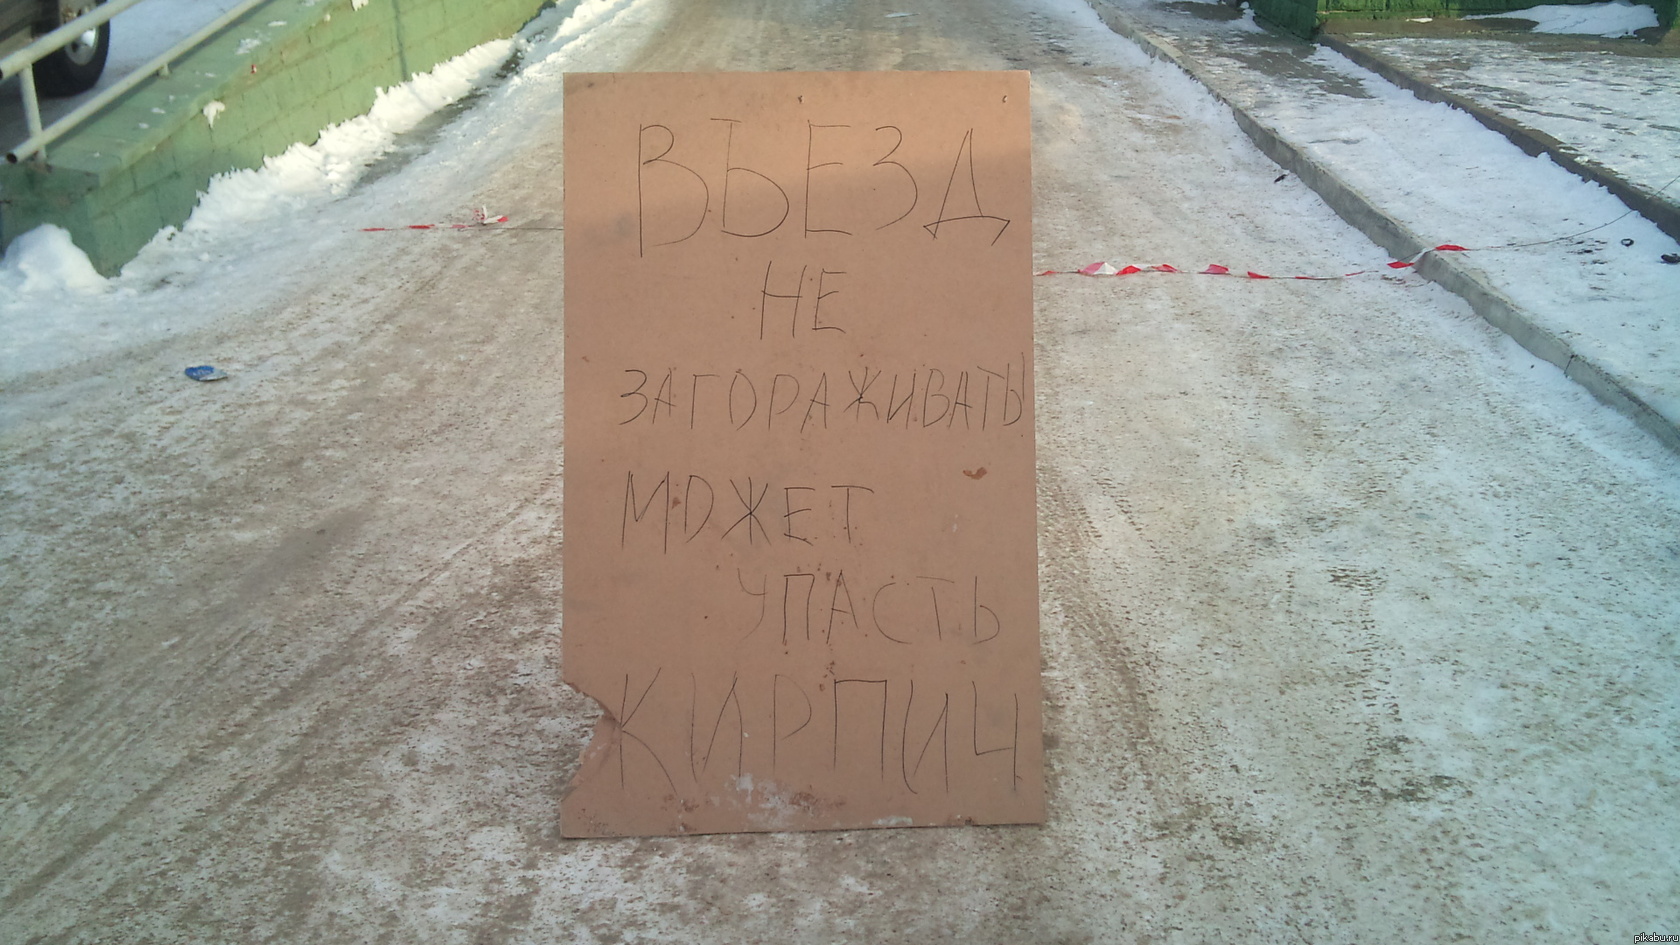 ВЪЕЗД
НЕ
ЗАГОРАЖИВАТЬ!
МОЖЕТ
УПАСТЬ
КИРПИЧ
pikabu.ru